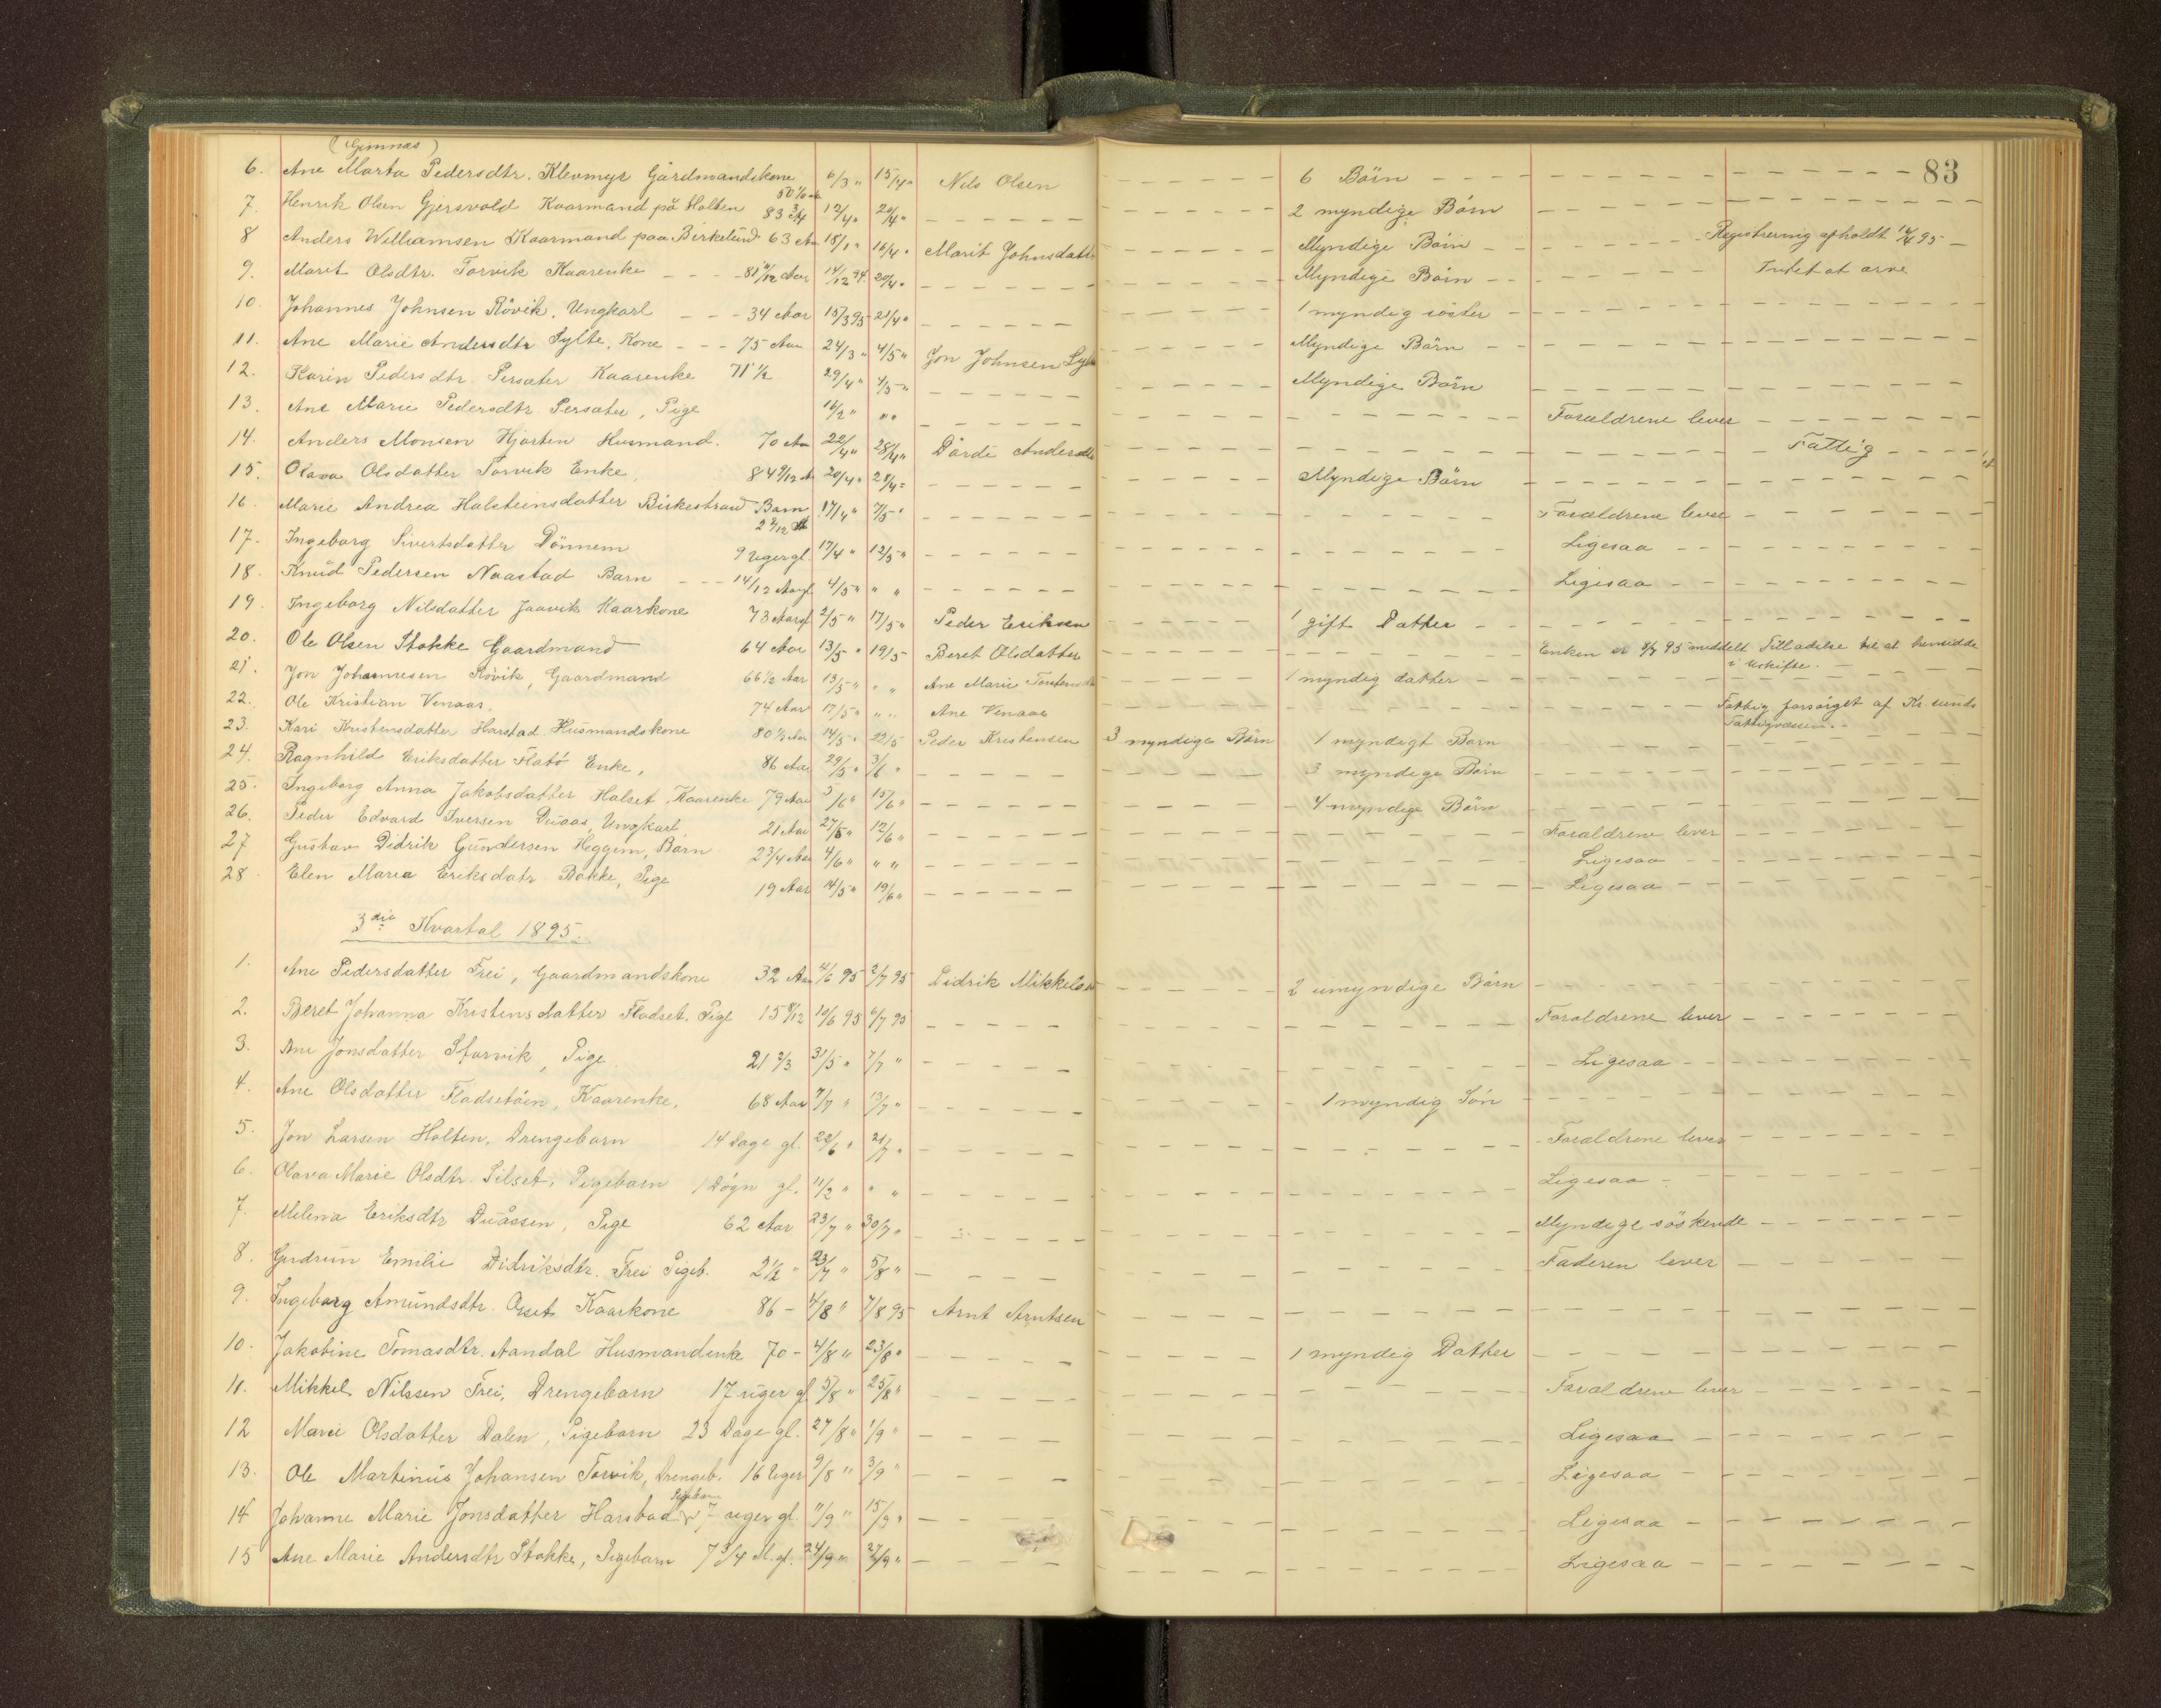 (Gimnas)
83
6. Ane Marta Pedersdtr. Klevmyr Gårdmandskone 50 6/3 " 15/4 " Nils Olsen 6 Børn
7. Henrik Olsen Gjersvold Kaarmand på Holten 83 3/4 12/4 " 20/4 " 2 myndige Børn
8 Anders Williamsen Kaarmand paa Berkelund 63 Aar 18/1 " 16/4 " Marit Johnsdatter Myndige Børn Registrering afholdt 16/4 95
9. Marit Olsdtr. Torvik Kaarenke 81 11/12 Aar 14/12 94. 20/4 " Myndige Børn Intet at arve
10. Johannes Johnsen Røvik, Ungkarl 34 Aar 15/3 95 21/4 " 1 myndig søster
11. Ane Marie Andersdtr Sylte, Kone 75 Aar 24/3 " 4/5 " Jon Johnsen Sylte Myndige Børn
12. Karin Pedersdtr. Persæter Kaarenke 71 1/2 29/4 " 4/5 " Myndige Børn
13. Ane Marie Pedersdtr. Persæter, Pige 16/2 " " " Forældrene lever
14. Anders Monsen Hjorten Husmand. 70 Aar 22/4 " 28/4 " Dårdi Andersdtr Fattig
15. Olava Olsdatter Torvik Enke, 84 9/12 A 20/4 " 28/4 = Myndige Børn
16. Marie Andrea Halsteinsdatter Birkestrand Barn 2 2/12 A 17/4 " 7/5 " Forældrene lever
17. Ingeborg Sivertsdatter Dønnem 9 Uger gl. 17/4 " 12/5 " Ligesaa
18. Knud Pedersen Naastad Barn 14/12 Aar gl 4/5 " " " Ligesaa
19. Ingeborg Nilsdatter Jaavik Kaarkone 73 Aar gl 2/5 " 17/5 " Peder Eriksen 1 gift Datter
20. Ole Olsen Stokke Gaardmand 64 Aar 13/5 " 19/5 Beret Olsdatter Enken er 8/7 95 meddelt Tilladelse til at hensidde
i Uskifte.
21. Jon Johannesen Røvik, Gaardmand 66 1/2 Aar 13/5 " " " Ane Marie Torstensdtr 1 myndig datter
22. Ole Kristian Venaas. 74 Aar 17/5 " " " Ane Venaas Fattig forsørget af Kr.sunds
Fattigvæsen.
23. Kari Kristensdatter Harstad Husmandskone 80 1/2 Aar 14/5 " 22/5 Peder Kristensen 3 myndige Børn 1 myndigt Barn
24. Ragnhild Eriksdatter Flatø Enke, 86 Aar 29/5 " 3/6 " 3 myndige Børn
25. Ingeborg Anna Jakobsdatter Halset, Kaarenke 79 Aar 3/6 " 15/6 " 4 myndige Børn
26. Peder Edvard Iversen Duaas, Ungkarl 21 Aar 27/5 " 12/6 " Forældrene lever
27 Gustav Didrik Gundersen Heggem, Barn 2 3/4 Aar 4/6 " " " Ligesaa
28 Elen Maria Eriksdatr Bakke, Pige 19 Aar 14/5 " 19/6 " Ligesaa
3die Kvartal 1895.
1. Ane Pedersdatter Frei, Gaardmandskone 32 Aar 4/6 95 2/7 95 Didrik Mikkelsen 2 umyndige Børn
2. Beret Johanna Kristensdatter Fladset, Pige 15 8/12 10/6 95 6/7 95 Forældrene lever
3. Ane Jonsdatter Storvik, Pige 21 2/3 31/5 " 7/7 " Ligesaa
4. Ane Olsdatter Fladsetøien, Kaarenke, 68 Aar 7/7 " 13/7 " 1 myndig Søn
5. Jon Larsen Holten, Drengebarn 14 Dage gl. 22/6 " 21/7 " Forældrene lever
6. Olava Marie Olsdtr. Silset, Pigebarn 1 Døgn gl. 11/2 " " " Ligesaa
7. Milena Eriksdtr Duåssen, Pige 62 Aar 23/7 " 30/7 " Myndige søskende
8. Gudrun Emilie Didriksdtr. Frei Pigeb. 2 1/2 " 23/7 " 5/8 " Faderen lever
9. Ingeborg Amundsdtr. Oset Kaarkone 86 - 4/8 " 7/8 95 Arnt Arntsen
10. Jakobine Tomasdtr. Aandal Husmandenke 70 - 4/8 " 23/8 " 1 myndig Datter
11. Mikkel Nilssen Frei, Drengebarn 17 uger gl 5/8 " 25/8 " Forældrene lever
12 Marie Olsdatter Dalen, Pigebarn 23 Dage gl. 27/8 " 1/9 " Ligesaa
13. Ole Martinus Johansen Torvik, Drengeb. 16 Uger 9/8 " 3/9 " Ligesaa
14 Johanne Marie Jonsdatter Harstad Pigebarn 7 uger gl. 11/9 " 15/9 " Ligesaa
15 Ane Marie Andersdtr Stokke, Pigebarn 7 3/4 M. gl. 24/9 " 27/9 " Ligesaa